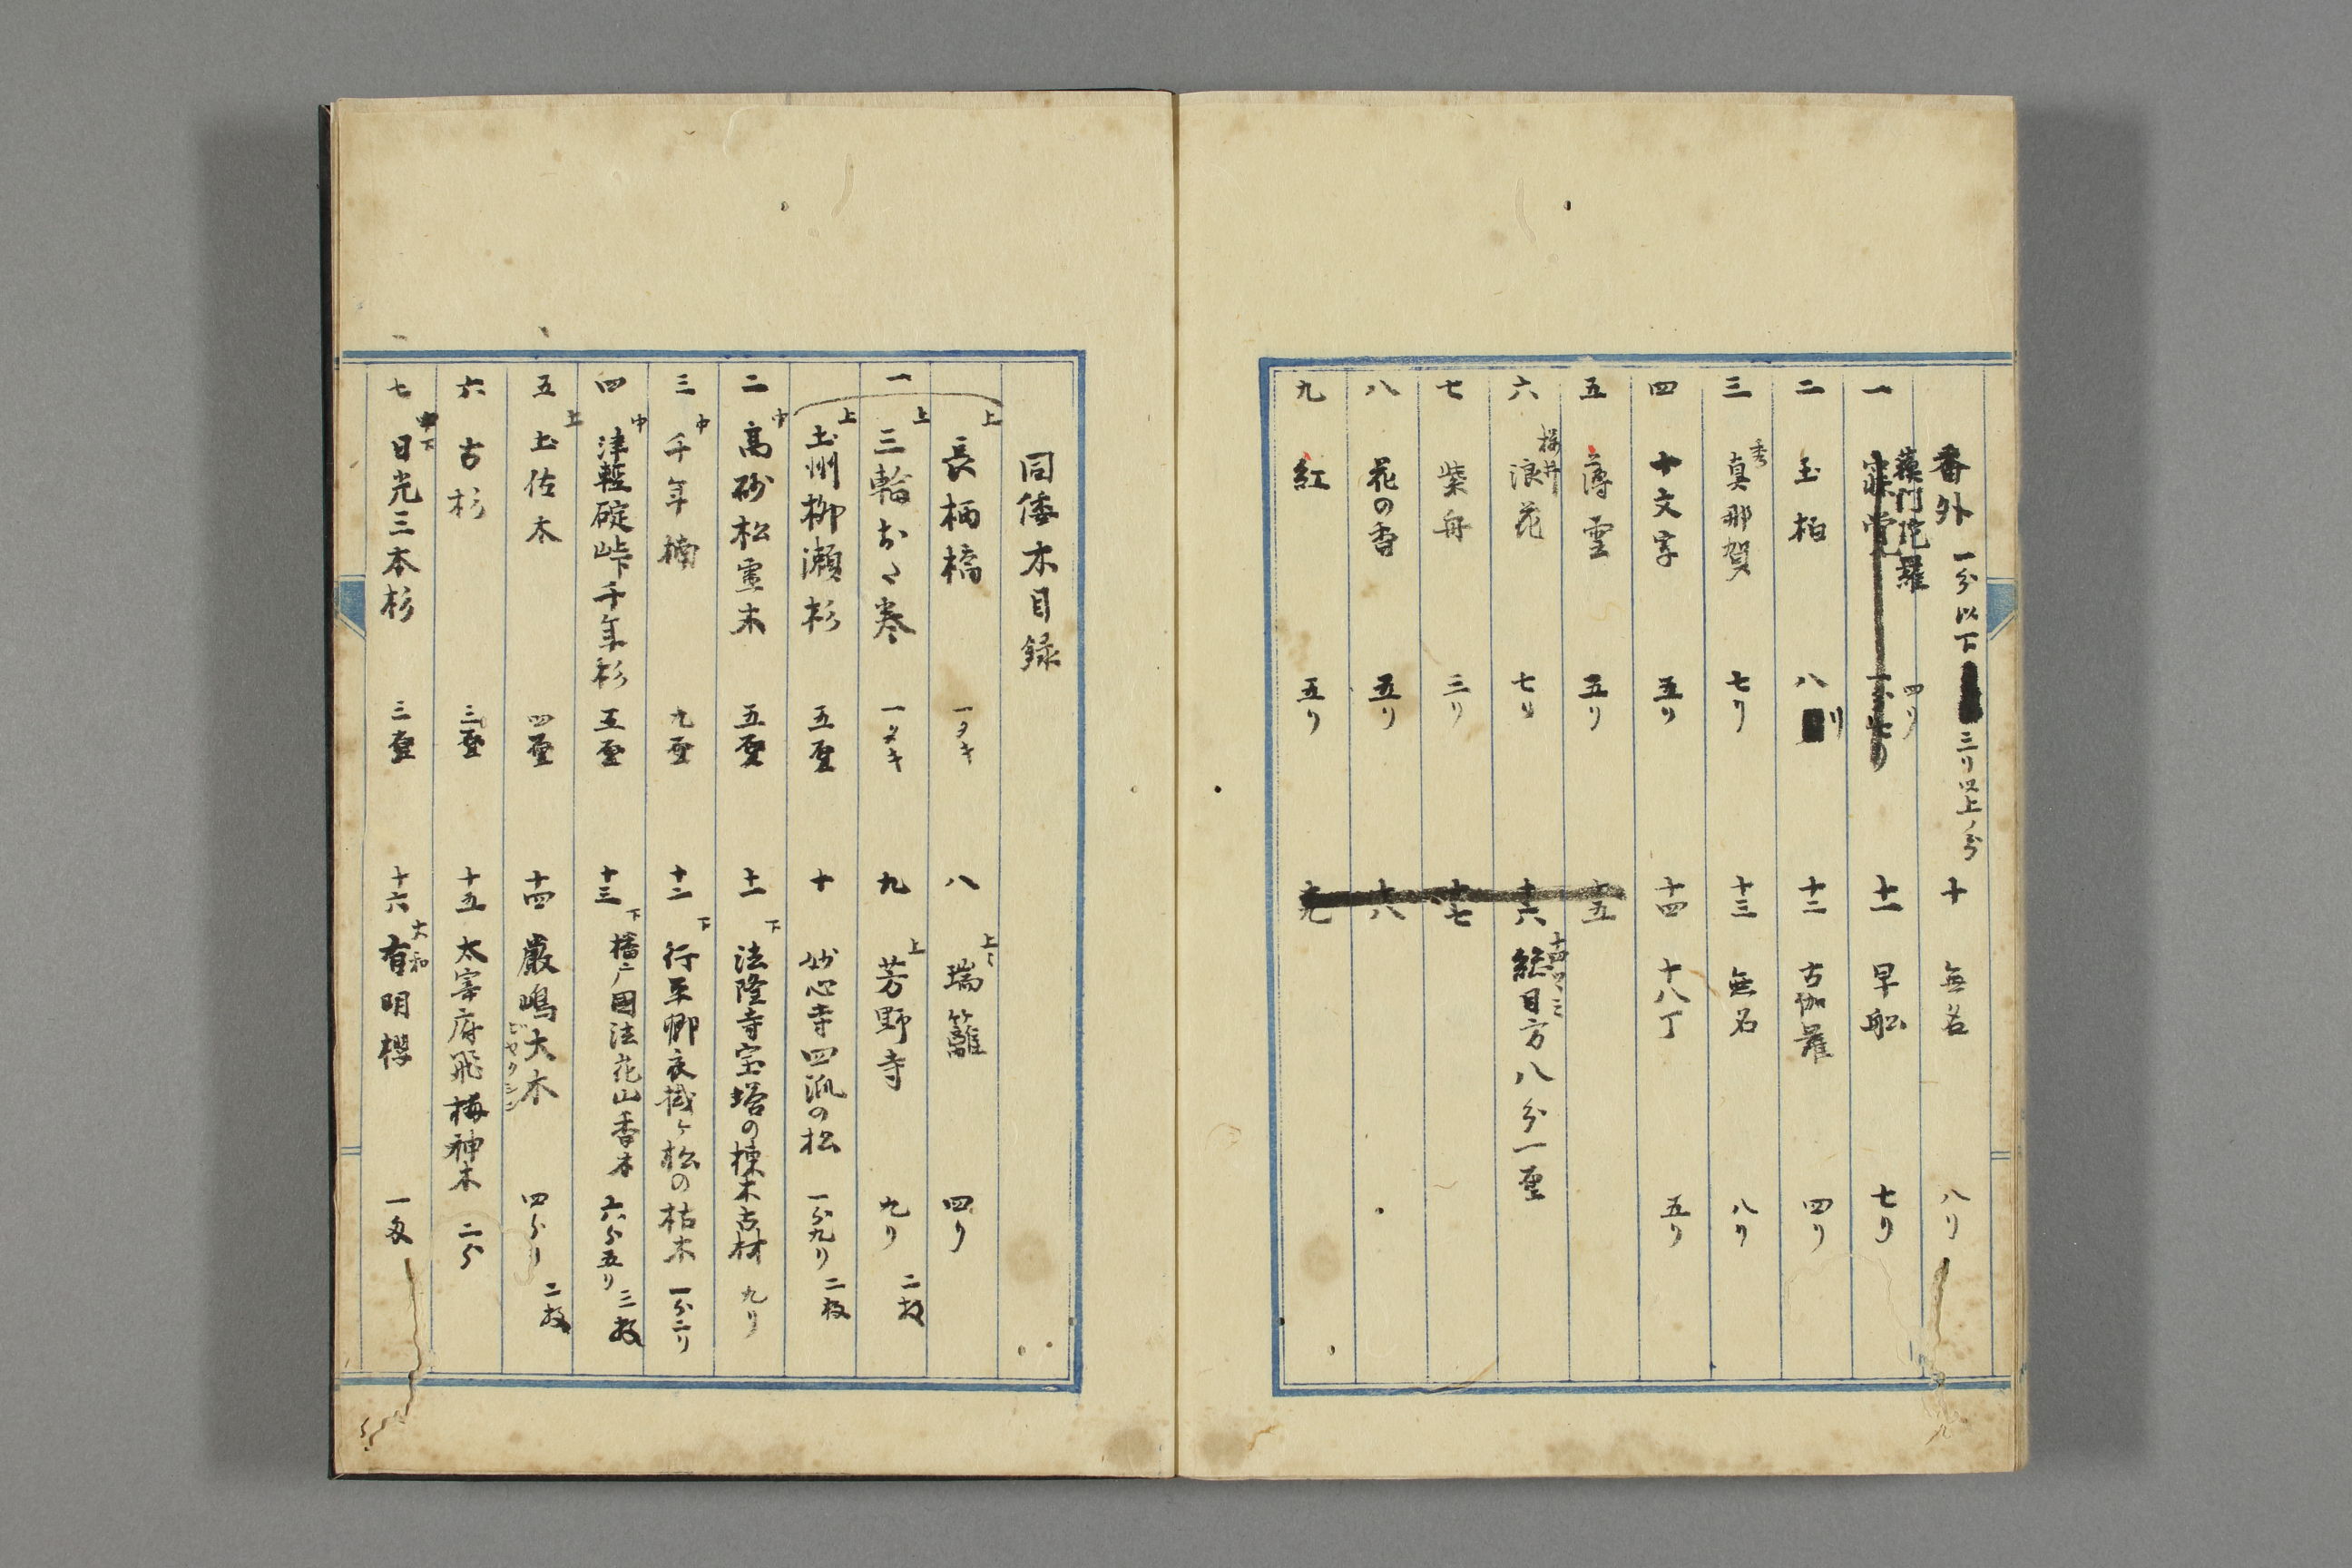 番外 一分以下 三リ以上ノ分
一 蘇門陀羅 四リ
二 玉柏 八リ
三 秀 真那賀 七リ
四 十文字 五リ
五 薄雲 五リ
六 桜井 浪花 七リ
七 紫舟 三リ
八 花の香 五リ
九 紅 五リ
十 無名 八リ
十一 早船 七リ
十二 古伽羅 四リ
十三 無名 八リ
十四 十八丁 五リ
十五
十六
十七
十八
十九
総目方八分一厘
同倭木目録
上 長柄橋 一タキ
一 上 三輪おだ巻 一タキ
上 土州柳瀬杉 五厘
二 中 高砂松霊木 五厘
三 中 千年楠 九厘
四 中 津軽碇峠千年杉 五厘
五 上 土佐木 四厘
六 古杉 三厘
七 中下 日光三本杉 三厘
八 上々 瑞籬 四リ
九 上 芳野寺 九リ 二枚
十 妙心寺四派の松 一分九リ 二枚
十一 下 法隆寺宝塔の棟木古材 九リ
十二 下 行平卿衣掛ケ松の枯木 一分二リ
十三 下 播广国法花山香木 六分五リ 三枚
十四 厳嶋大木 四分リ 二枚
十五 太宰府飛梅神木 二分
十六 大和 有明桜 一匁